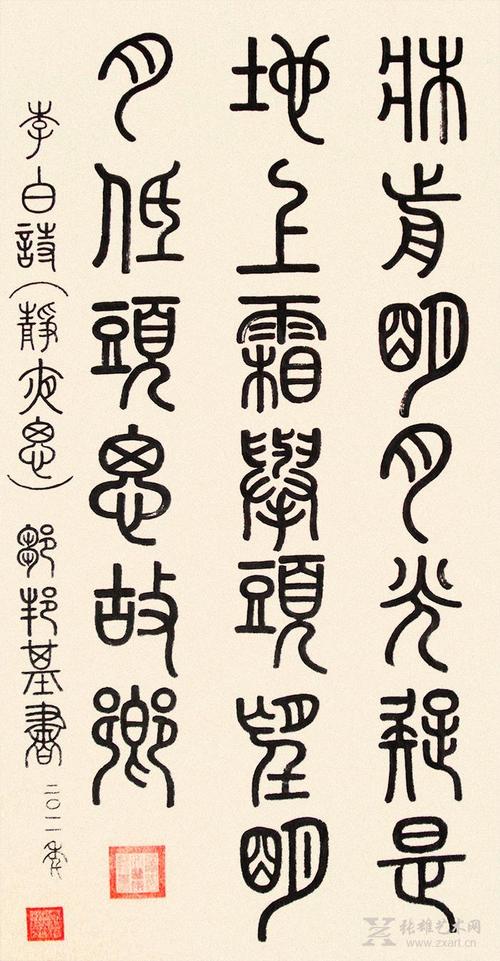 牀前明月光疑是
地上霜舉頭望明
月低頭思故鄉
李白詩(靜夜思) 鄒邦基書 二〇一一年
张雄艺术网
www.zxart.cn